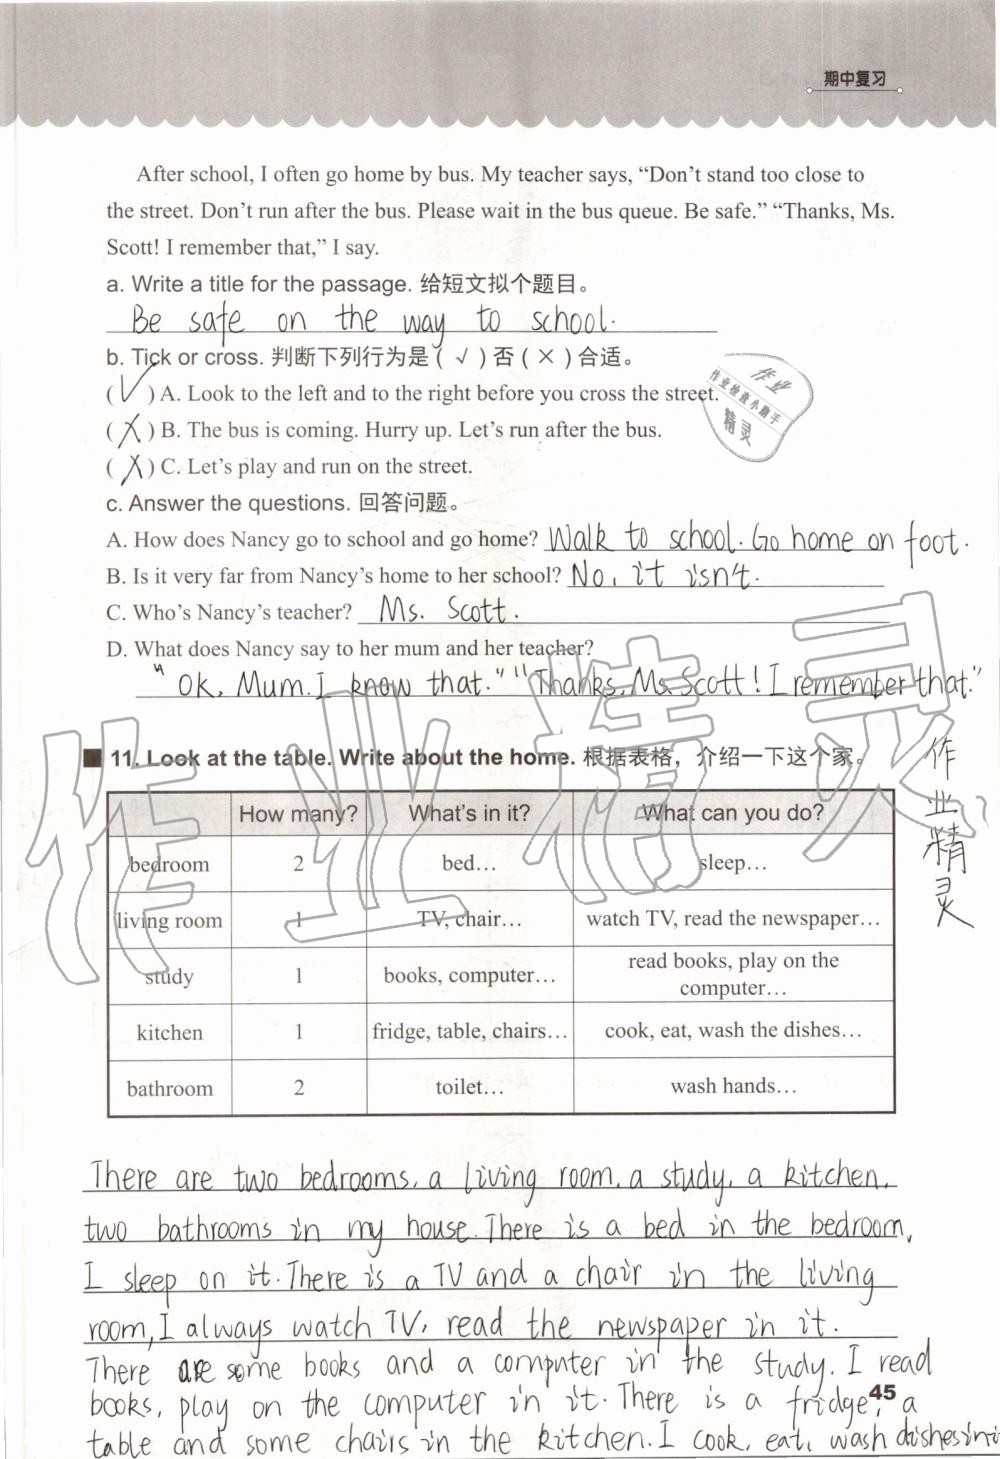 期中复习
After school, I often go home by bus. My teacher says, “Don’t stand too close to
the street. Don’t run after the bus. Please wait in the bus queue. Be safe.” “Thanks, Ms.
Scott! I remember that,” I say.
a. Write a title for the passage. 给短文拟个题目。
Be safe on the way to school.
b. Tick or cross. 判断下列行为是 ( √ ) 否 ( × ) 合适。
( √ ) A. Look to the left and to the right before you cross the street.
( × ) B. The bus is coming. Hurry up. Let’s run after the bus.
( × ) C. Let’s play and run on the street.
作业
作业检查小助手
精灵
c. Answer the questions. 回答问题。
A. How does Nancy go to school and go home? Walk to school. Go home on foot.
B. Is it very far from Nancy’s home to her school? No, it isn't.
C. Who’s Nancy’s teacher? Ms. Scott.
D. What does Nancy say to her mum and her teacher?
"OK, Mum. I know that." "Thanks, Ms. Scott! I remember that."
作业精灵
11. Look at the table. Write about the home. 根据表格，介绍一下这个家。
How many? What’s in it? What can you do?
bedroom 2 bed… sleep…
living room 1 TV, chair… watch TV, read the newspaper…
study 1 books, computer… read books, play on the
computer…
kitchen 1 fridge, table, chairs… cook, eat, wash the dishes…
bathroom 2 toilet… wash hands…
作业精灵
There are two bedrooms, a living room, a study, a kitchen,
two bathrooms in my house. There is a bed in the bedroom,
I sleep on it. There is a TV and a chair in the living
room, I always watch TV, read the newspaper in it.
There are some books and a computer in the study. I read
books, play on the computer in it. There is a fridge, a
45
table and some chairs in the kitchen. I cook, eat, wash dishes in